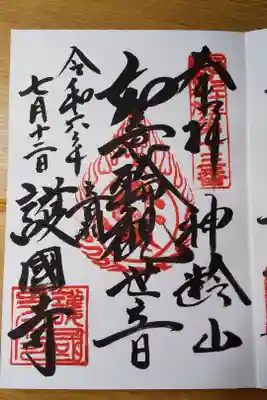 奉拝
神齢山
如意輪観世音
令和六年
七月十二日
護國寺